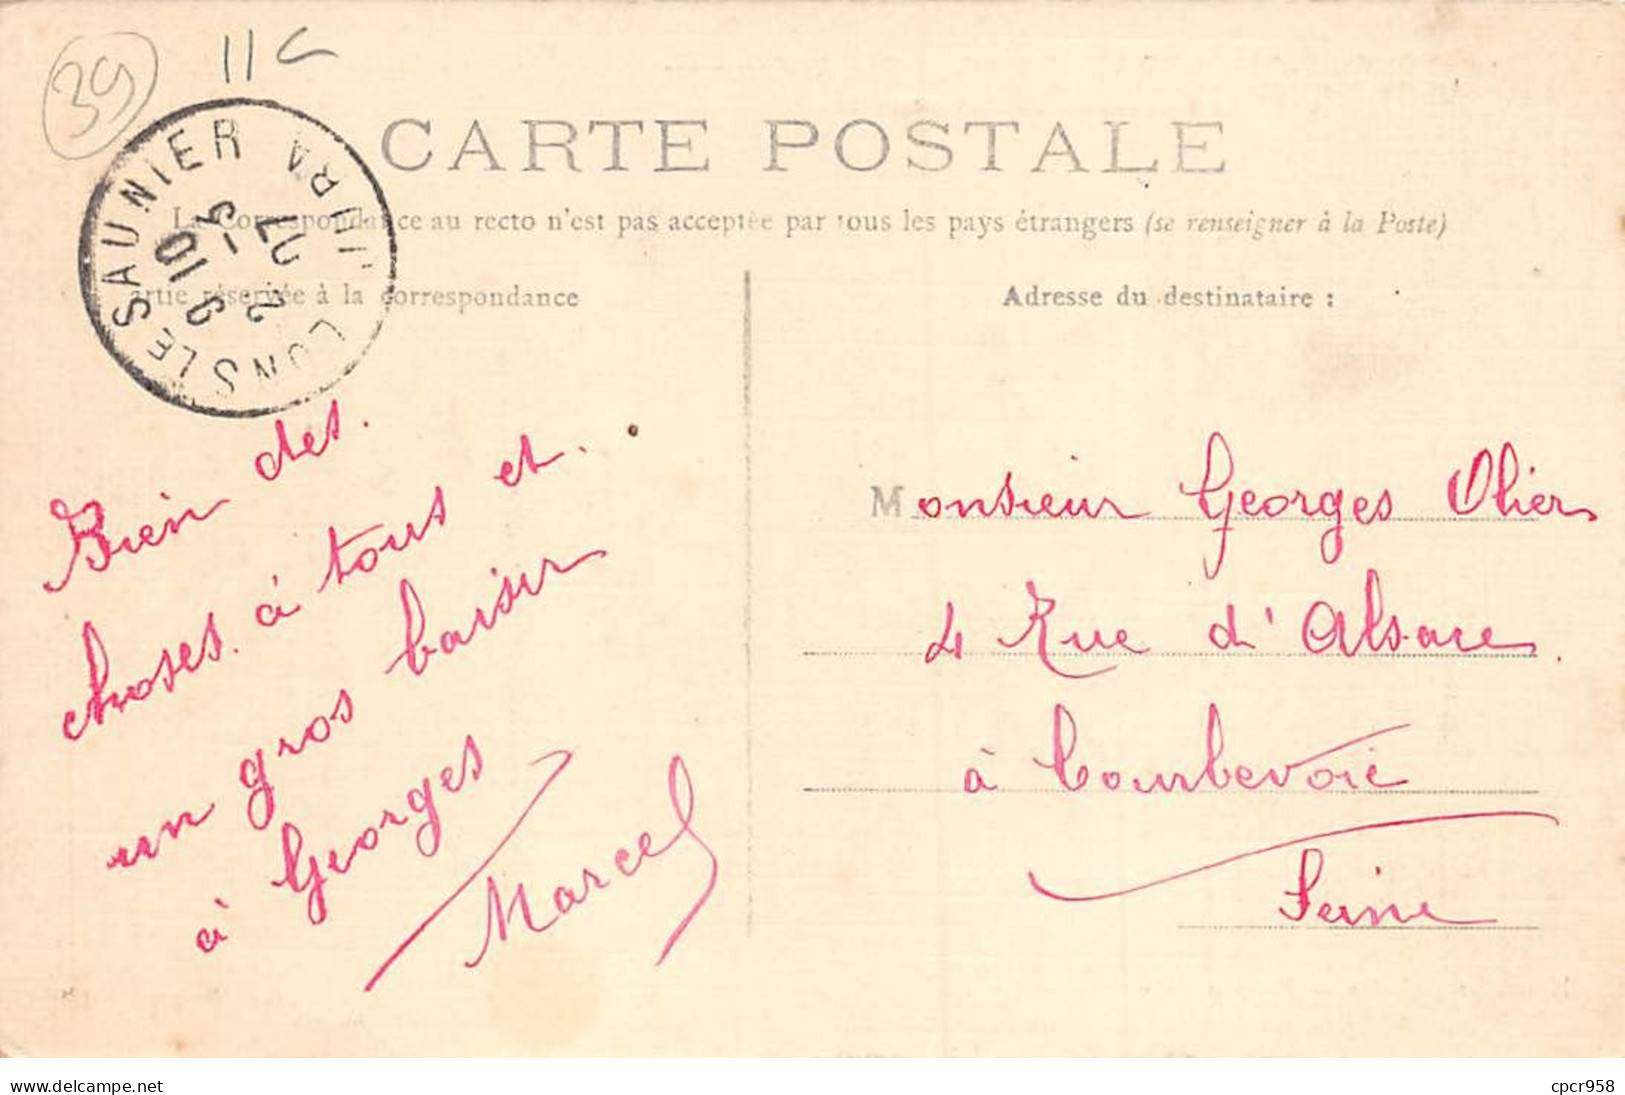 39
CARTE POSTALE
La Correspondance au recto n'est pas acceptée par tous les pays étrangers (se renseigner à la Poste)
artie réservée à la correspondance
Adresse du destinataire :
LONS LE SAUNIER JURA
Bien des.
choses. à tous et.
un gros baiser
à Georges
Marcel
Monsieur Georges Olier
4 Rue d'Alsace
à Courbevoie
Seine
www.delcampe.net
cpcr958